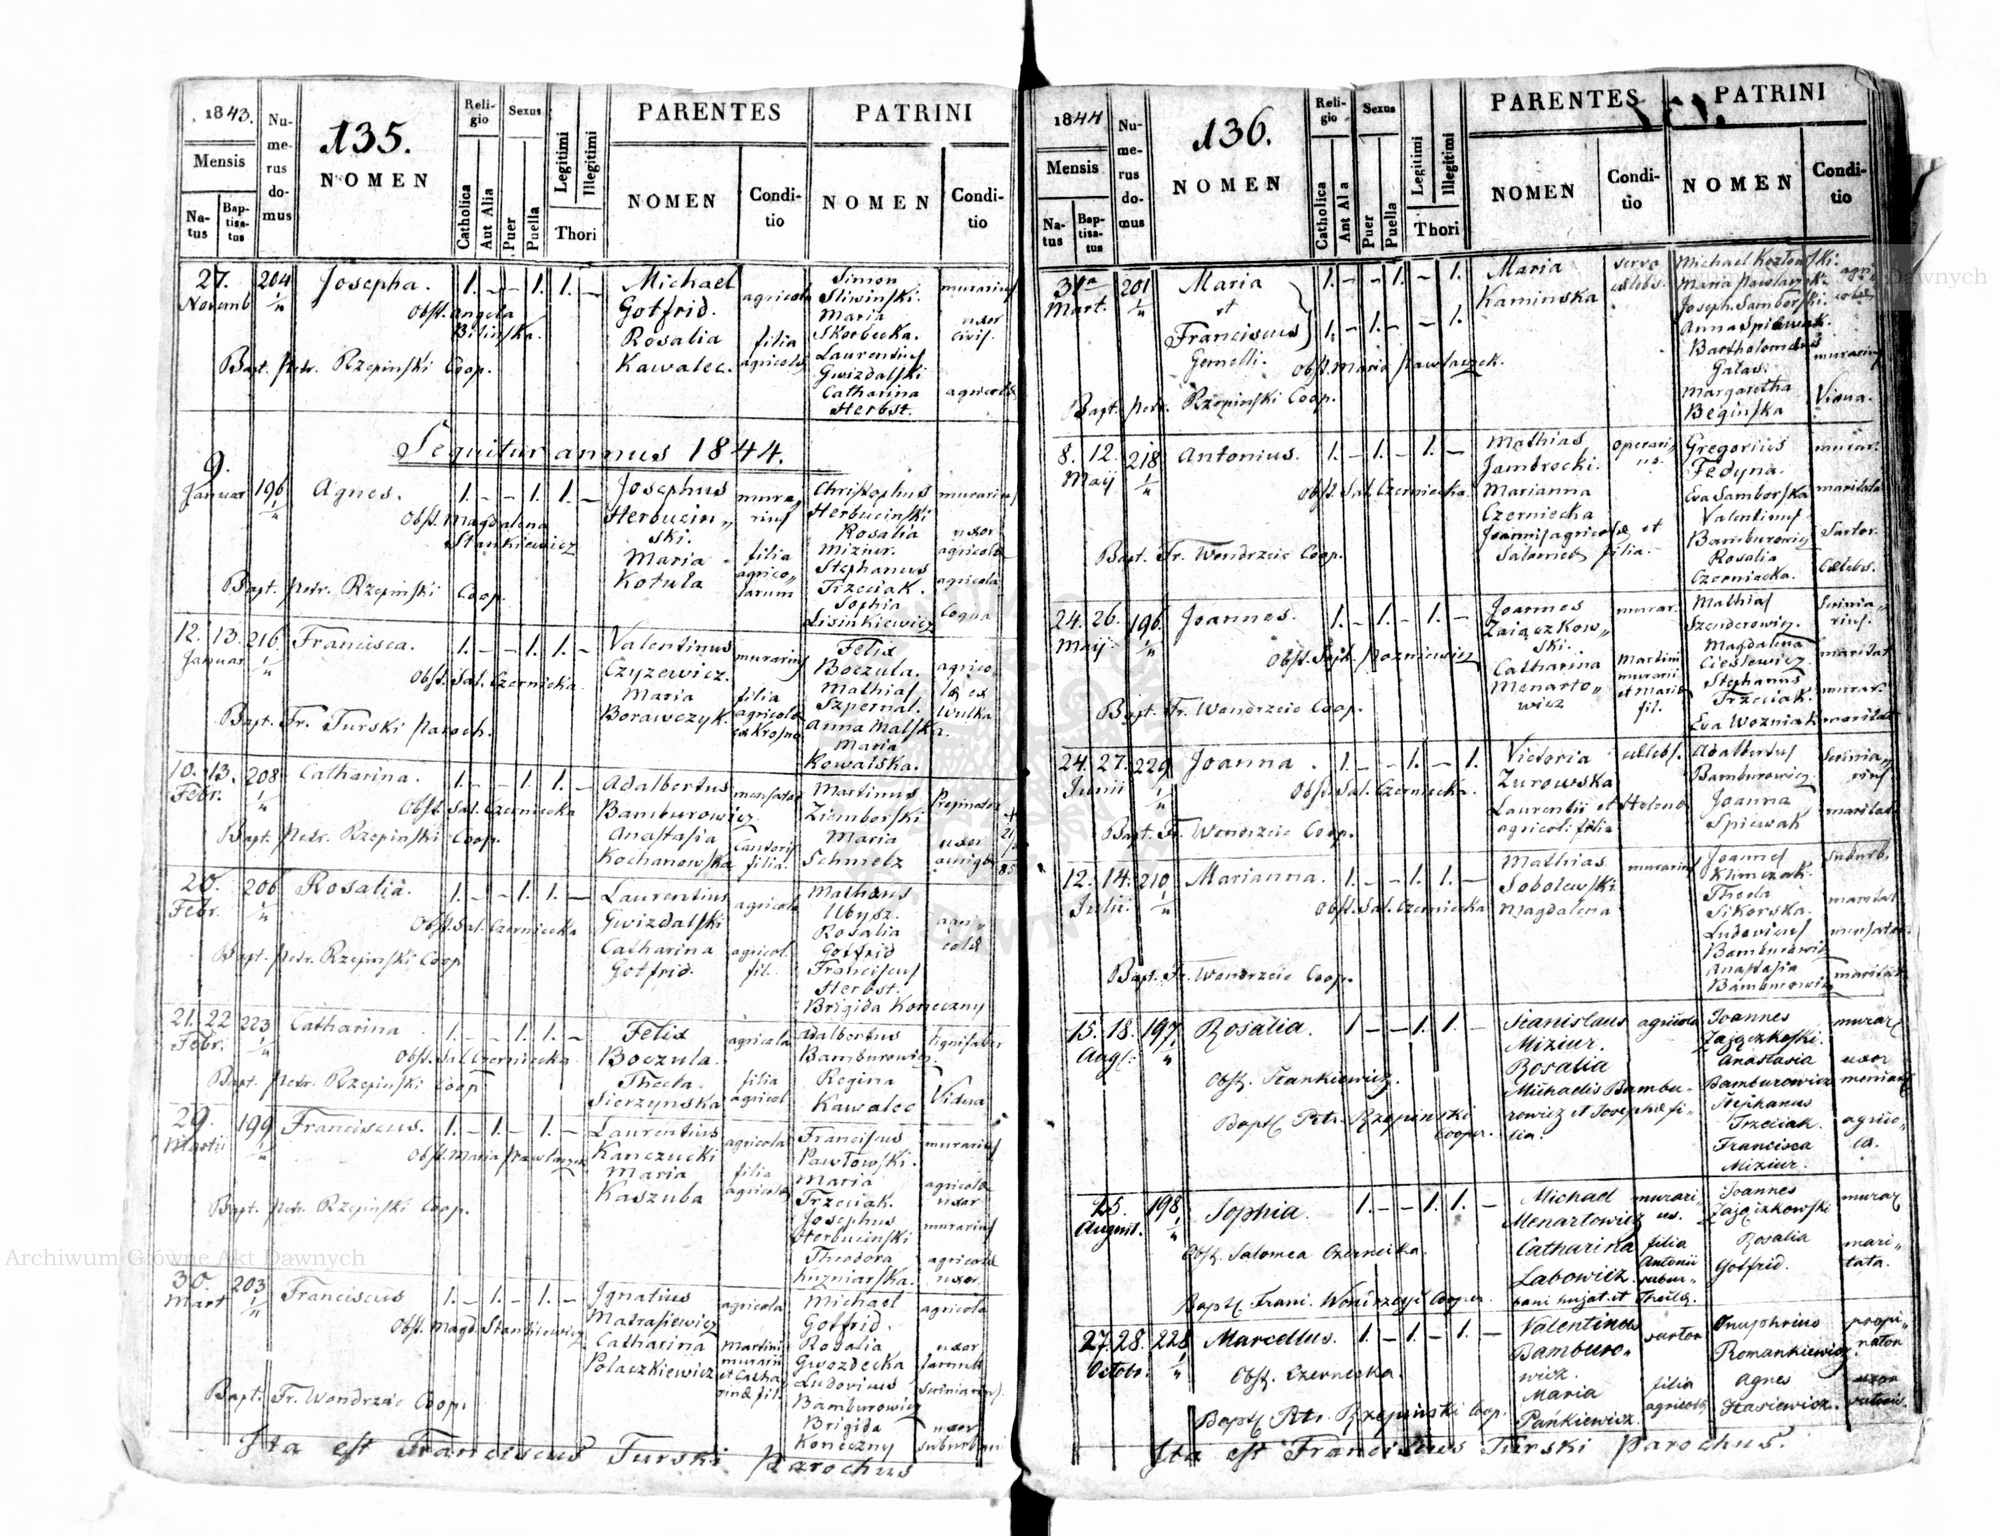 1843.
135.
Numerus domus
Mensis
Natus
Baptisatus
NOMEN
Religio
Catholica
Aut Alia
Sexus
Puer
Puella
Legitimi
Illegitimi
Thori
PARENTES
NOMEN
Conditio
PATRINI
NOMEN
Conditio
27. 204 Josepha. 1. – – 1. 1. –
Novemb
Obst. Angela
Bilinska.
Bapt. Petr. Rzepinski Coop.
Michael
Gotfrid. agricola
Rosalia filia
Kawalec. agricolæ
Simon
Sliwinski. murarius
Maria
Skorbecka. uxor civis.
Laurentius
Gwizdalski
Catharina agricolæ
Herbst.
Sequitur annus 1844.
9. 196 Agnes. 1. – – 1. 1. –
Januar
Obst. Magdalena
Stankiewicz
Bapt. Petr. Rzepinski Coop.
Josephus murarius
Herbucinski.
Maria filia
Kotula agricolarum
Christophus murarius
Herbucinski
Rosalia uxor
Miziur. agricolæ
Stephanus
Trzeciak. agricola
Sophia
Lisinkiewicz Coqua
12. 13. 216 Francisca. 1. – – 1. 1. –
Januar
Obst. Sal. Czernicka
Bapt. Fr. Turski Paroch.
Valentinus murarius
Czyzewicz.
Maria filia
Borawczyk. agricolæ ex Krosna
Felix
Boczula.
Mathias
Szpernal.
Anna Malska.
Maria
Kowalska.
10. 13. 208 Catharina. 1. – – 1. 1. –
Febr.
Obst. Sal. Czernicka
Bapt. Petr. Rzepinski Coop.
Adalbertus
Bamburowicz.
Anastasia
Kochanowska filia.
Martinus Propinator
Ziemborski
Maria uxor
Schmelz
20. 206 Rosalia. 1. – – 1. 1. –
Febr.
Obst. Sal. Czernicka
Bapt. Petr. Rzepinski Coop
Laurentius agricola
Gwizdalski
Catharina agricol.
Gotfrid. fil.
Mathæus
Ubysz.
Rosalia
Gotfrid
Franciscus
Herbst.
Brigida Koneczny
21. 22 223 Catharina 1. – – 1. 1. –
Febr.
Obst. Sal. Czernicka.
Bapt. Petr. Rzepinski Coop
Felix agricola
Boczula.
Thecla. filia
Sierzynska agricol.
Adalbertus lignifaber
Bamburowicz.
Regina
Kawalec Vidua
29. 199 Franciscus. 1. – 1. – 1. –
Martii
Obst. Maria Pawlaczek
Bapt. Petr. Rzepinski Coop.
Laurentius agricola
Kanczucki
Maria filia
Kaszuba agricolæ
Franciscus murarius
Pawłowski.
Maria agricolæ
Trzeciak. uxor
Josephus murarius
Herbucinski
Theodora agricolæ
Kuzniarska. uxor.
30. 203 Franciscus 1. – 1. – 1. –
Mart
Obst. Magd. Stankiewicz
Bapt. Fr. Wondrzeic Coop.
Ignatius agricola
Matrasiewicz
Catharina Martini
Polaczkiewicz murarii et Catharinæ fil.
Michael agricola
Gotfrid.
Rosalia uxor
Gwozdecka
Ludovicus
Bamburowicz
Brigida uxor
Koneczny suburbani
Ita est Franciscus Turski Parochus
1844
136.
Numerus domus
Mensis
Natus
Baptisatus
NOMEN
Religio
Catholica
Aut Alia
Sexus
Puer
Puella
Legitimi
Illegitimi
Thori
PARENTES
NOMEN
Conditio
PATRINI
NOMEN
Conditio
31a 201 Maria 1. – – 1. – 1.
Mart. et
Franciscus 1. – 1. – 1.
Gemelli.
Obst. Maria Pawlaczek.
Bapt. Petr. Rzepinski Coop.
Maria serva
Kaminska cælebs.
Michael Kozłowski.
Maria Pawlaczek.
Joseph. Samborski.
Anna Spiewak.
Bartholomæus murarius
Galas.
Margaretha Vidua.
Beginska
8. 12. 218 Antonius. 1. – 1. – 1. –
Maij
Obst. Sal. Czernicka.
Bapt. Fr. Wondrzeic Coop.
Mathias operarius.
Jambrocki.
Marianna
Czerniecka
Joannis agricolæ et
Salomeæ filia.
Gregorius murar.
Fedyna.
Eva Samborska maritata
Valentinus
Bamburowicz Sartor.
Rosalia
Czerniecka. Cælebs.
24. 26. 196 Joannes. 1. – 1. – 1. –
Maij
Bapt. Fr. Wondrzeic Coop.
Joannes murar.
Zaiączkowski.
Catharina Martini
Menartowicz murarii et Mariæ fil.
Mathias
Szenderowicz.
Magdalena maritat
Cieslewicz.
Stephanus murar.
Trzeciak.
Eva Wozniak maritat
24. 27. 229 Joanna. 1. – – 1. – 1.
Junii
Obst. Sal. Czernicka.
Bapt. Fr. Wondrzeic Coop.
Victoria cælebs.
Zurowska
Laurentii et Helenæ
agricol. filia
Adalbertus
Bamburowicz
Joanna maritat
Spiewak
12. 14. 210 Marianna. 1. – – 1. 1. –
Julii.
Obst. Sal. Czernicka
Bapt. Fr. Wondrzeic Coop.
Mathias murarius
Sobolewski
Magdalena
Joannes suburb.
Klimczak.
Thecla maritat
Sikorska.
Ludovicus
Bamburowicz
Anastasia maritat
Bamburowicz
15. 18. 197 Rosalia. 1 – – 1. 1. –
Aug.
Obst. Stankiewicz.
Bapt. Petr. Rzepinski
Cooper.
Stanislaus agricola
Miziur.
Rosalia
Michaelis Bambu-
rowicz et Josephæ fi-
lia.
Joannes murar
Zajączkoski.
Anastasia uxor
Bamburowicz
Stephanus
Trzeciak agricola.
Francisca
Miziur.
15. 198 Sophia. 1. – – 1. 1. –
August.
Obst. Salomea Czernicka.
Bapt. Franc. Wondrzeyc Cooper
Michael murarius.
Menartowicz
Catharina filia
Labowicz Antonii suburbani hujat. et Theclæ.
Joannes murar
Zajączkowski
Rosalia maritata.
Gotfrid.
27. 28. 228 Marcellus. 1. – 1. – 1. –
Octobr.
Obst. Czernecka.
Bapt. Petr. Rzepinski Coop.
Valentinus sartor
Bamburowicz.
Maria filia
Pańkiewicz. agricolæ
Onuphrius propinator
Romankiewicz
Agnes uxor
Stasiewicz.
Ita est Franciscus Turski Parochus.
Archiwum Główne Akt Dawnych